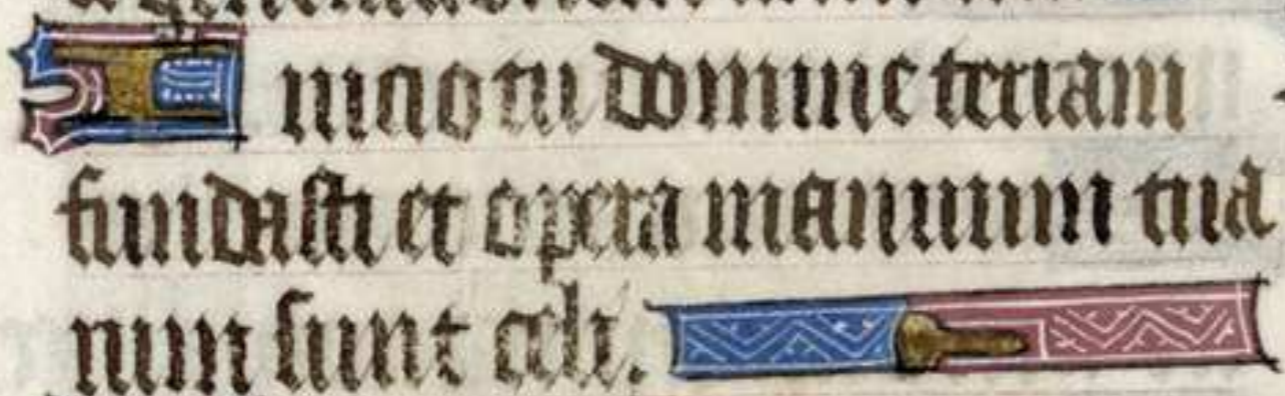 Inicio tu domine terram
fundasti et opera manuum tua
rum sunt celi.